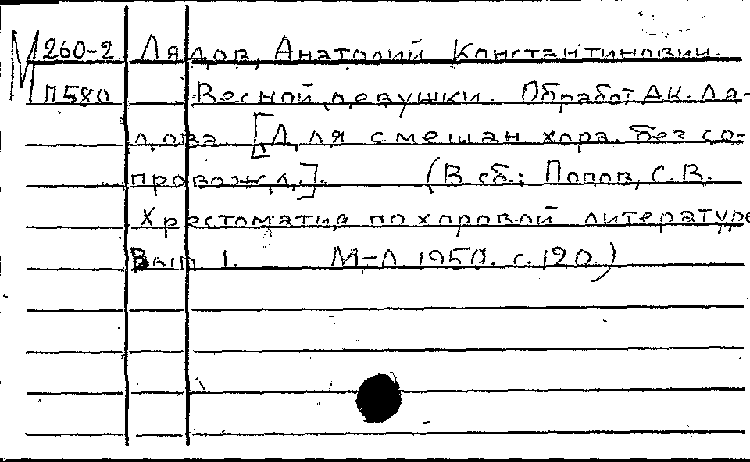 М 260-2 Лядов, Анатолий Константинович.
П580 Весной девушки. Обработ А.К. Ля-
дова [Для смешан хора без со-
провожд.]. (В сб.: Попов, С.В.
Хрестоматия по хоровой литературе
Вып 1. М-Л 1950. с. 120.)